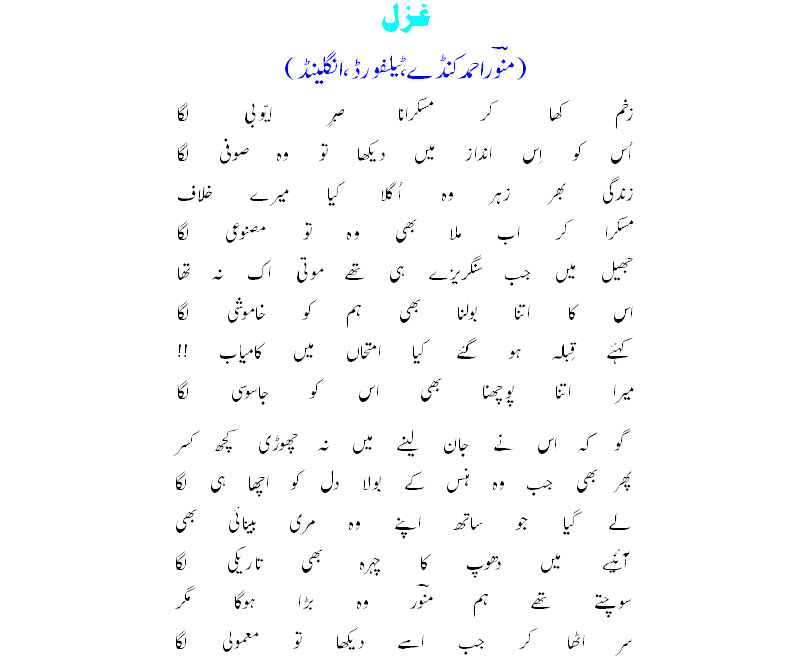 غزل
(منوؔر احمد کنڈے، ٹیلفورڈ، انگلینڈ)
زخم کھا کر مسکرانا صبرِ ایّوبی لگا
اُس کو اِس انداز میں دیکھا تو وہ صوفی لگا
زندگی بھر زہر وہ اُگلا کیا میرے خلاف
مسکرا کر اب ملا بھی وہ تو مصنوعی لگا
جھیل میں جب سنگریزے ہی تھے موتی اک نہ تھا
اس کا اتنا بولنا بھی ہم کو خاموشی لگا
کہئے قِبلہ ہو گئے کیا امتحاں میں کامیاب !!
میرا اتنا پوچھنا بھی اس کو جاسوسی لگا
گو کہ اس نے جان لینے میں نہ چھوڑی کچھ کسر
پھر بھی جب وہ ہنس کے بولا دل کو اچھا ہی لگا
لے گیا جو ساتھ اپنے وہ مری بینائی بھی
آئینے میں دھوپ کا چہرہ بھی تاریکی لگا
سوچتے تھے ہم منوؔر وہ بڑا ہوگا مگر
سر اٹھا کر جب اسے دیکھا تو معمولی لگا